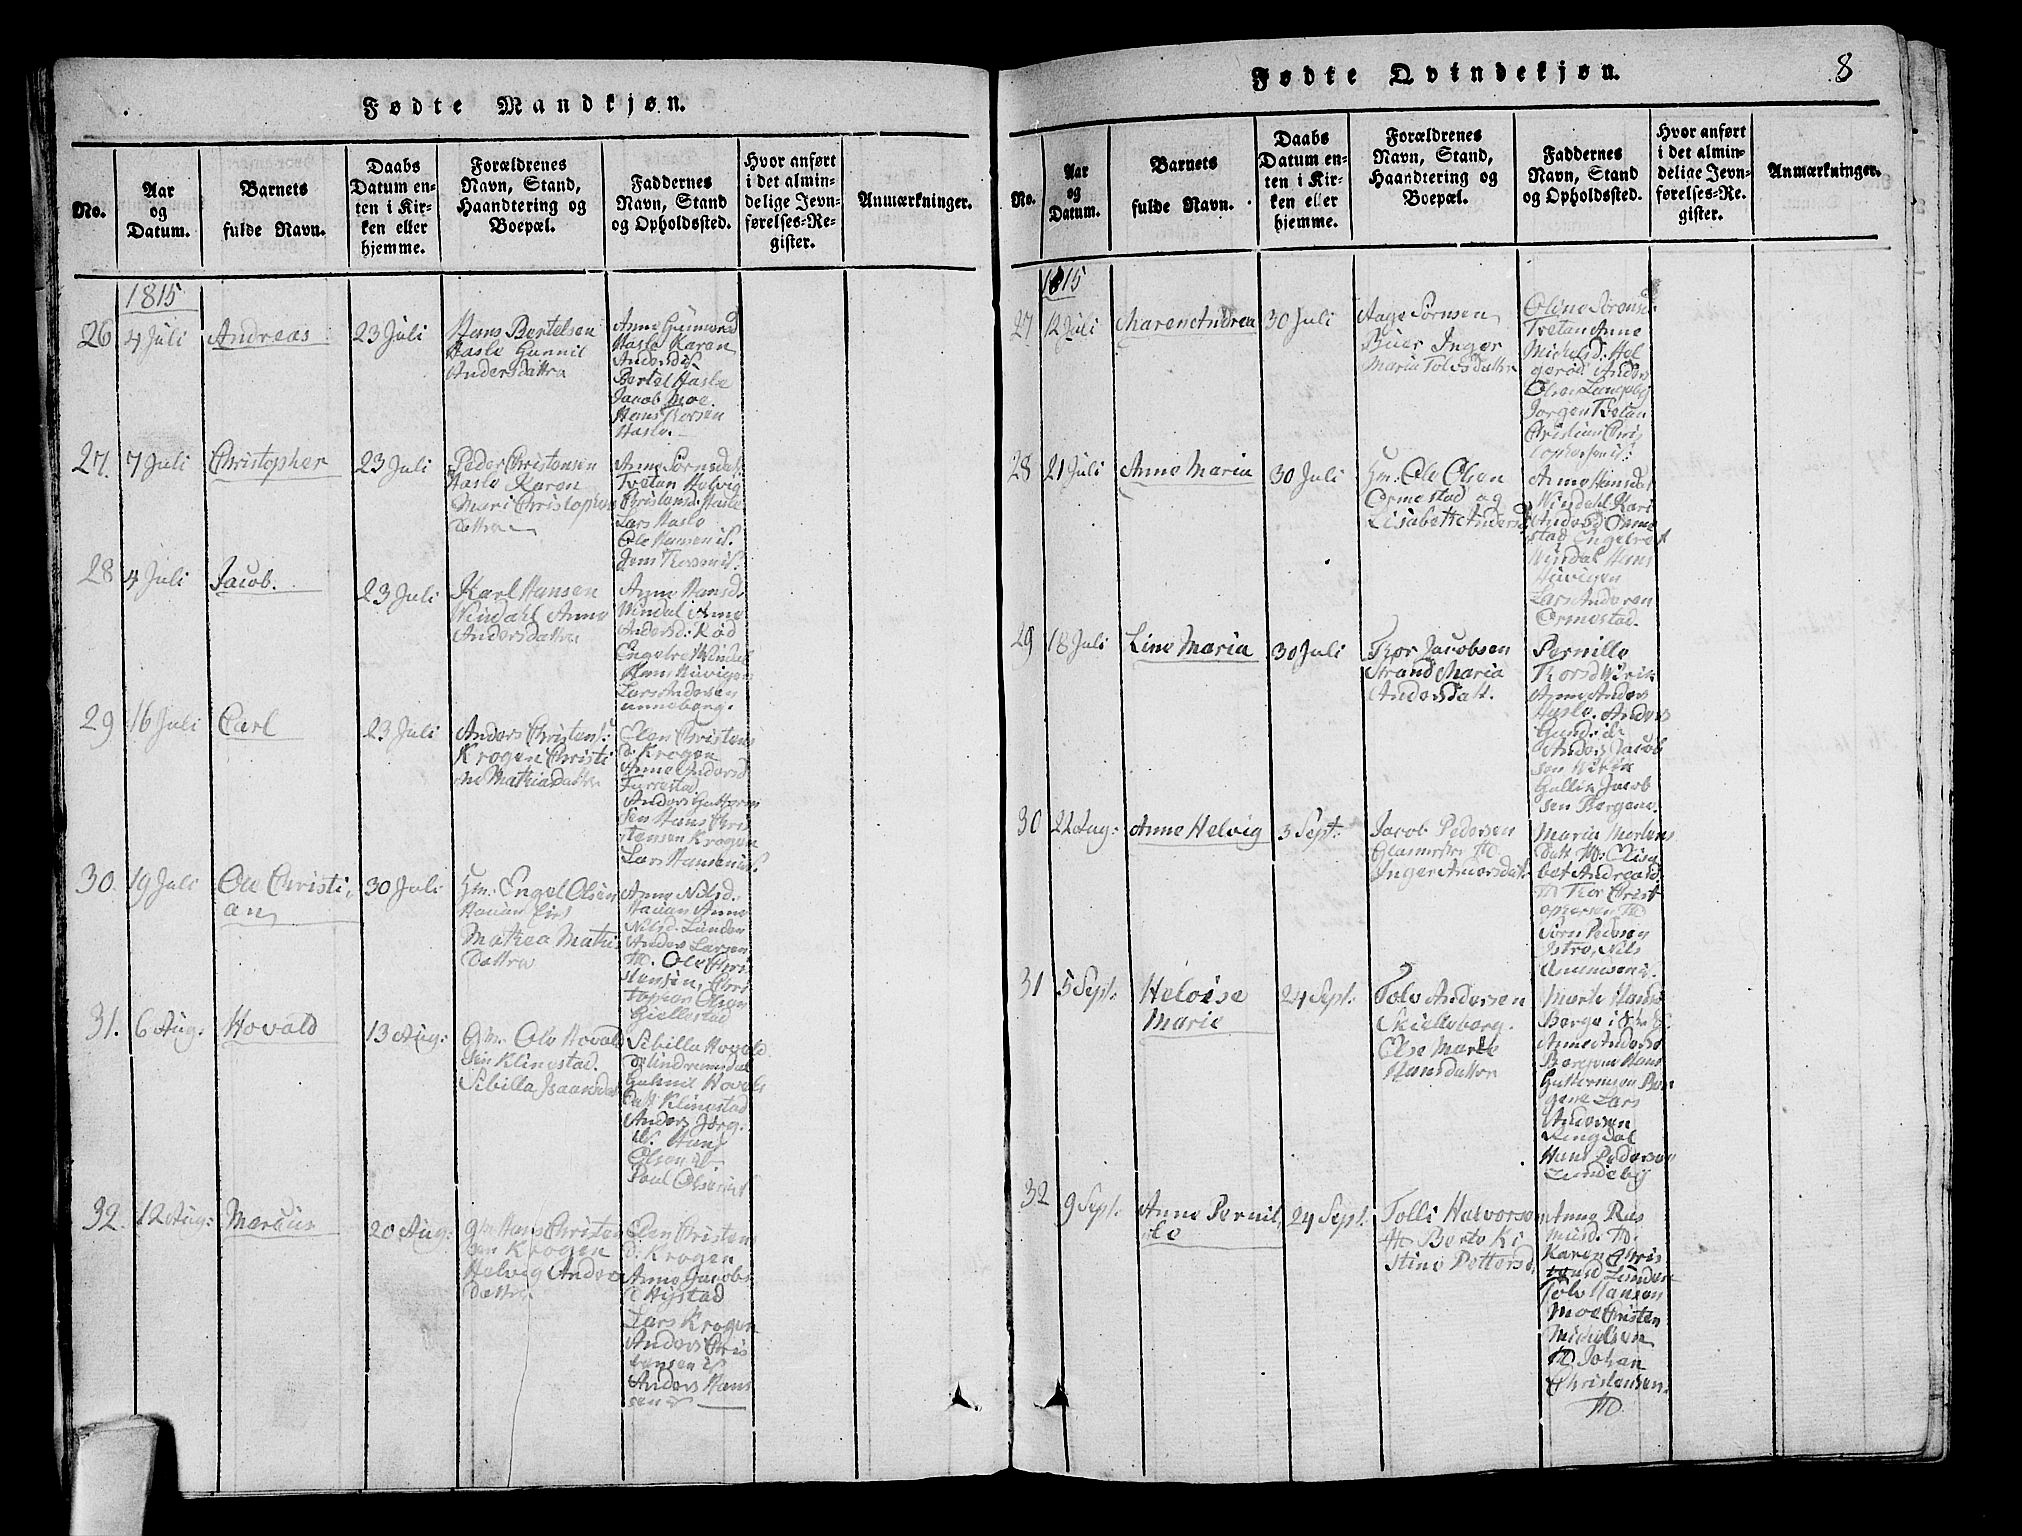 Fødte Mandkjøn.
No.
Aar
og
Datum.
Barnets
fulde Navn.
Daabs
Datum en-
ten i Kir-
ken eller
hjemme.
Forældrenes
Navn, Stand,
Haandtering og
Boepæl.
Faddernes
Navn, Stand
og Opholdssted.
Hvor anført
i det almin-
delige Jevn-
førelses-Re-
gister.
Anmærkninger.
1815
26
4 Juli
Andreas
23 Juli
Hans Bertelsen
Hasle Gunnil
Andersdattra
Anne
Hasle Karen
Andersd
Bertel Hasle
Jacob Moe.
Hans Thorsen
Hasle.
27.
7 Juli
Christopher
23 Juli
Peder Christensen
Hasle Karen
Mari Christophers
dattra
Anne Sørnsdat
Tvetan Helvig
Christensd. Hasle
Lars Hasle
Ole Hansen
28
4 Juli
Jacob.
23 Juli
Karl Hansen
Windahl Anne
Andersdattra
Anne Hansd
Windal Anne
Andersd: Rød
Engebret Windal
Hans
Lars Andersen
29
16 Juli
Carl
23 Juli
Anders Christens:
Krogen Christi
ne Mathiasdattra
Elen Christens
d: Krogen
Anne Andersd
Furrestad
Anders Guttorm
sen Hans Chris
tensen Krogen
Lars Hansen
30.
19 Juli
Ole Christi,
an
30 Juli
Hm: Engel Olsen
Mathea Mathi
dattra
Anne Nilsd.
Anne
Nilsd. Lunden
Anders Larsen
Ole Chri
stensen, Chri
topher Olsen
Gjellestad
31.
6 Aug:
Hovald
13 Aug:
Gm: Ole Hovald
sen Klinestad.
Sibilla Isaansdat
Sibilla Hovald
Gunnil Hovals
datt Klinestad
Anders Jørg.
Hans
Olsen
Paul Olsen
32.
12 Aug:
Marcus
20 Aug:
Gm Hans Christen
sen Krogen
Helvig Anders
dattra
Elen Christens
d: Krogen
Anne Jacobs
d Nystad
Lars Krogen
Anders Chris
tensen
Anders Hans
sen
Fødte Qvindekjøn.
8
No.
Aar
og
Datum.
Barnets
fulde Navn.
Daabs
Datum en-
ten i Kir-
ken eller
hjemme.
Forældrenes
Navn, Stand,
Haandtering og
Boepæl.
Faddernes
Navn, Stand
og Opholdssted.
Hvor anført
i det almin-
delige Jevn-
førelses-Re-
gister.
Anmærkninger.
1815
27
12 Juli
Maren Andrea
30 Juli
Aage Sørnsen
Buer Inger
Maria Tolvsdatter
Oline
Tvetan Anne
Michelsd: Hel
gerød Anders
Olsen
Jørgen Tvetan
Christian Chris
tophersen
28
21 Juli
Anne Maria
30 Juli
Hm: Ole Olsen
Ormestad og
Lisabeth Andersd
Anne Hansdat
Windahl Kari
Andersd Orme
stad Engebret
Windal Hans
Lars Andersen
Ormestad.
29
18 Juli
Line Maria
30 Juli
Thor Jacobsen
Strand Maria
Andersdatt.
Pernille
Thorsd Wirik
Anne Anders
Hasle. Anders
Anders Jacob
sen Wirik
Gullik Jacob
sen Bergene
30
22 Aug:
Anne Helvig
3 Sept:
Jacob Pedersen
Glasmester
Inger Amorsdatt
Maria Mortens
datt Elisa
bet Andreasd.
Thor Christ
ophersen
Sørn Pedersen
Istre, Nils
Amunsen
31
5 Sept:
Heloise
Marie
24 Sept:
Tolv Andersen
Skielleberg.
Else Marie
Hansdatter
Marte Hansd
Berge i
Anne Andersd
Bergene Hans
Guttormsøn Ber
gene Lars
Andersen
Ringdal
Hans Pedersen
Lundeby
32
9 Sept.
Anne Pernil,
le
24 Sept.
Tolli Halvorsen
Berte Ki
stine Pettersd.
Anne Ras
musd.
Karen Chris
tensd Lunden
Tolv Hansen
Moe Christen
Michelsen
Johan
Christensen.